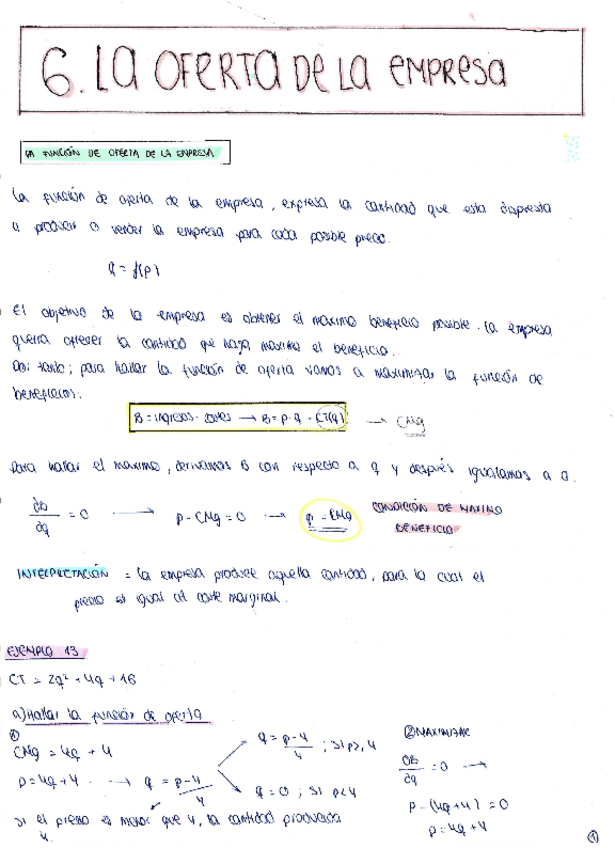 6. LA OFERTA DE LA EMPRESA
LA FUNCIÓN DE OFERTA DE LA EMPRESA
La función de oferta de la empresa, expresa la cantidad que esta dispuesta
a producir o vender la empresa para cada posible precio.
q = f(p)
El objetivo de la empresa es obtener el máximo beneficio posible. La empresa
querra ofrecer la cantidad que haga maximo el beneficio.
Por tanto; para hallar la función de oferta vamos a maximizar la función de
beneficios.
B = ingresos - costes → B = p·q - CT(q) → CMg
Para hallar el maximo, derivamos B con respecto a q y después igualamos a 0.
∂B/∂q = 0 → p - CMg = 0 → p = CMg CONDICIÓN DE MAXIMO BENEFICIO
INTERPRETACIÓN = la empresa produce aquella cantidad, para la cual el
precio es igual al coste marginal.
EJEMPLO 13
CT = 2q² + 4q + 16
a) Hallar la función de oferta
①
CMg = 4q + 4
p = 4q + 4 → q = p-4/4
q = p-4/4 ; si p≥4
q = 0 ; si p<4
si el precio es menor que 4, la cantidad producida
4.
② MAXIMIZAR
∂B/∂q = 0 →
p - (4q+4) = 0
p = 4q + 4
①